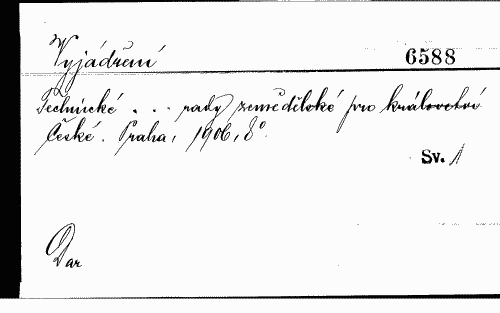 Vyjádření 6588
Technické . . . rady zemědělské pro království
České. Praha, 1906, 8°.
Sv. 1
Dar